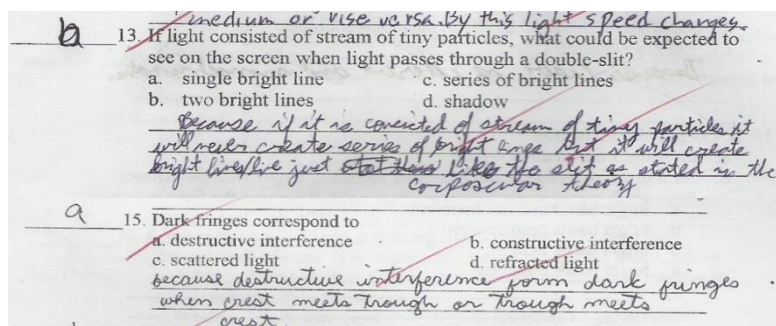 medium or vise versa. By this light speed changes.
b 13. If light consisted of stream of tiny particles, what could be expected to
see on the screen when light passes through a double-slit?
a. single bright line c. series of bright lines
b. two bright lines d. shadow
Because if it is consisted of stream of tiny particles it
will never create series of bright but it will create
bright just like two slit as stated in the
corpuscular theory
a 15. Dark fringes correspond to
a. destructive interference b. constructive interference
c. scattered light d. refracted light
because destructive interference form dark fringes
when crest meets trough or trough meets
crest.